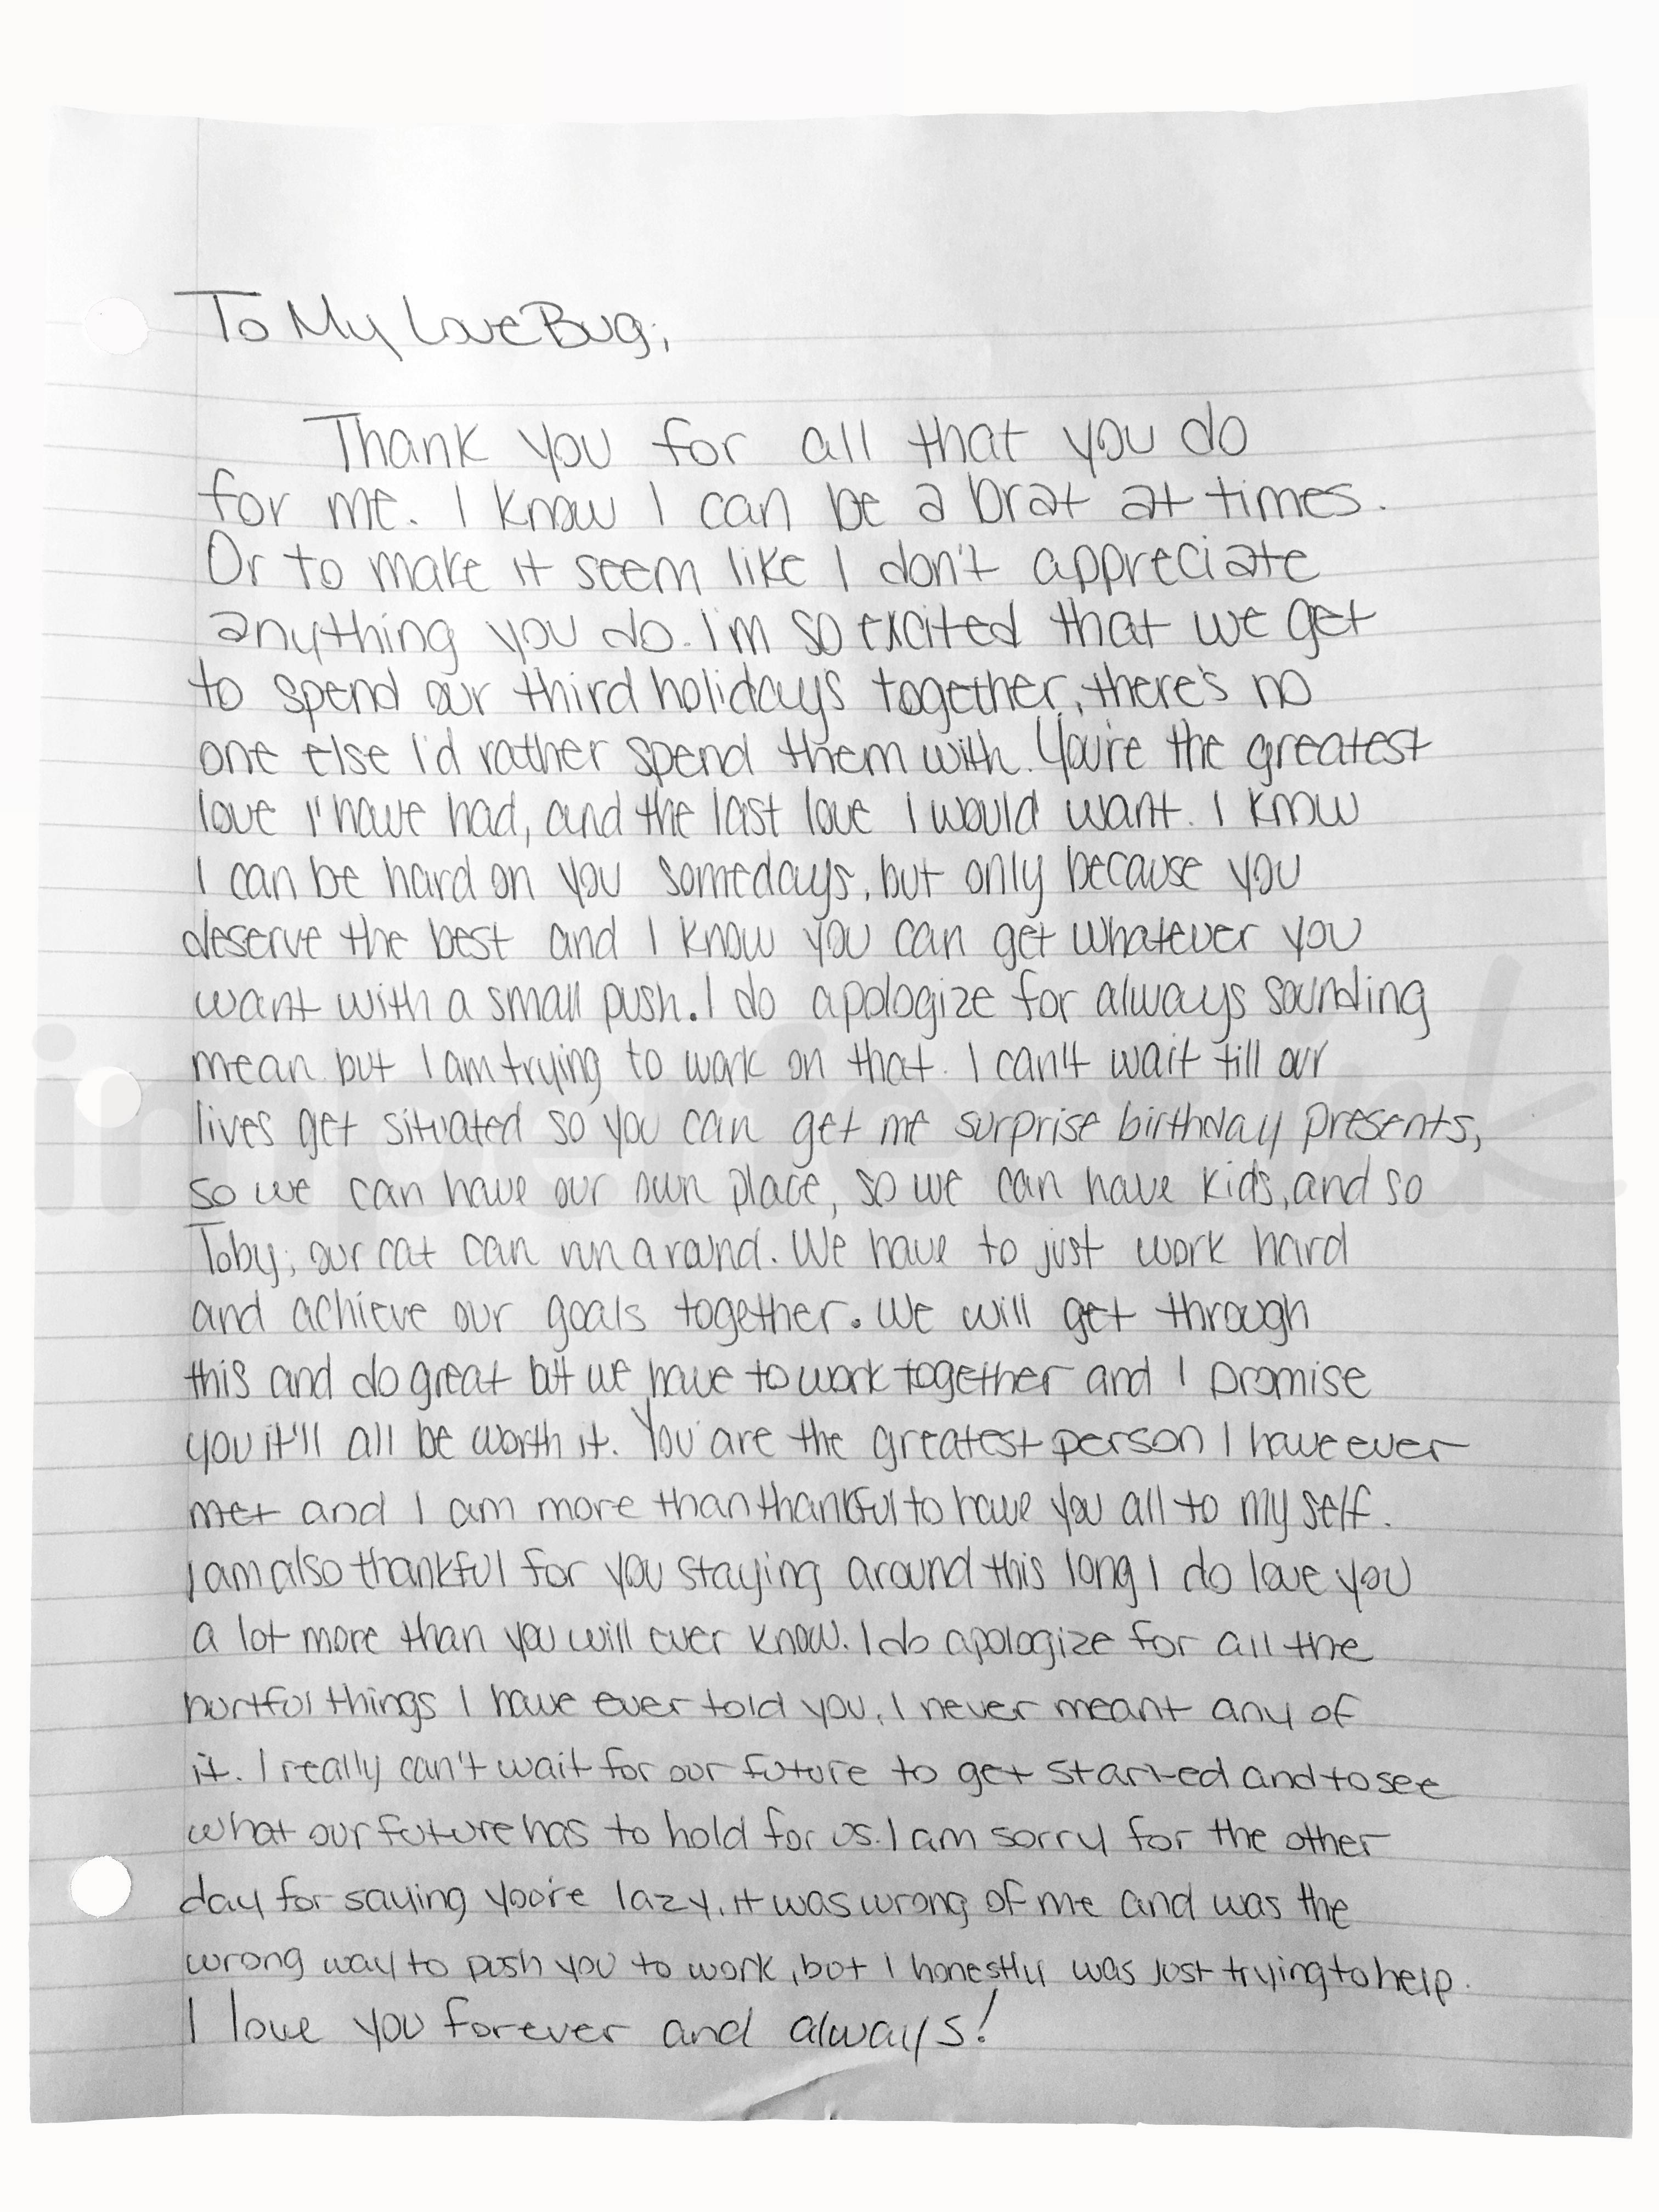 To My LoveBug;
Thank you for all that you do
for me. I know I can be a brat at times.
Or to make it seem like I don't appreciate
anything you do. I'm so excited that we get
to spend our third holidays together, there's no
one else I'd rather spend them with. You're the greatest
love I'have had, and the last love I would want. I know
I can be hard on you somedays, but only because you
deserve the best and I know you can get whatever you
want with a small push. I do apologize for always sounding
mean but I am trying to work on that. I can't wait till our
lives get situated so you can get me surprise birthday presents,
so we can have our own place, so we can have kids, and so
Toby; our cat can run around. We have to just work hard
and achieve our goals together. We will get through
this and do great but we have to work together and I promise
you it'll all be worth it. You are the greatest person I have ever
met and I am more than thankful to have you all to my self.
I am also thankful for you staying around this long I do love you
a lot more than you will ever know. I do apologize for all the
hurtful things I have ever told you, I never meant any of
it. I really can't wait for our future to get started and to see
what our future has to hold for us. I am sorry for the other
day for saying you're lazy, it was wrong of me and was the
wrong way to push you to work, but I honestly was just trying to help.
I love you forever and always!